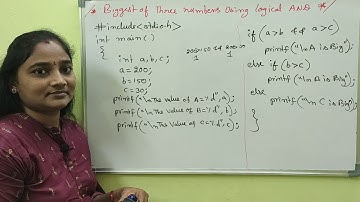 * Biggest of Three numbers Using logical AND *
#include<stdio.h>
int main()
{
200>150 && 200>30
1 1
int a,b,c;
a=200;
b=150;
c=30;
printf("\nThe value of A=%d",a);
printf("\nThe Value of B=%d",b);
printf("\nThe Value of C=%d",c);
if (a>b && a>c)
printf("\nA is Big");
else if (b>c)
printf("\n B is Big");
else
printf("\n C is Big");
}